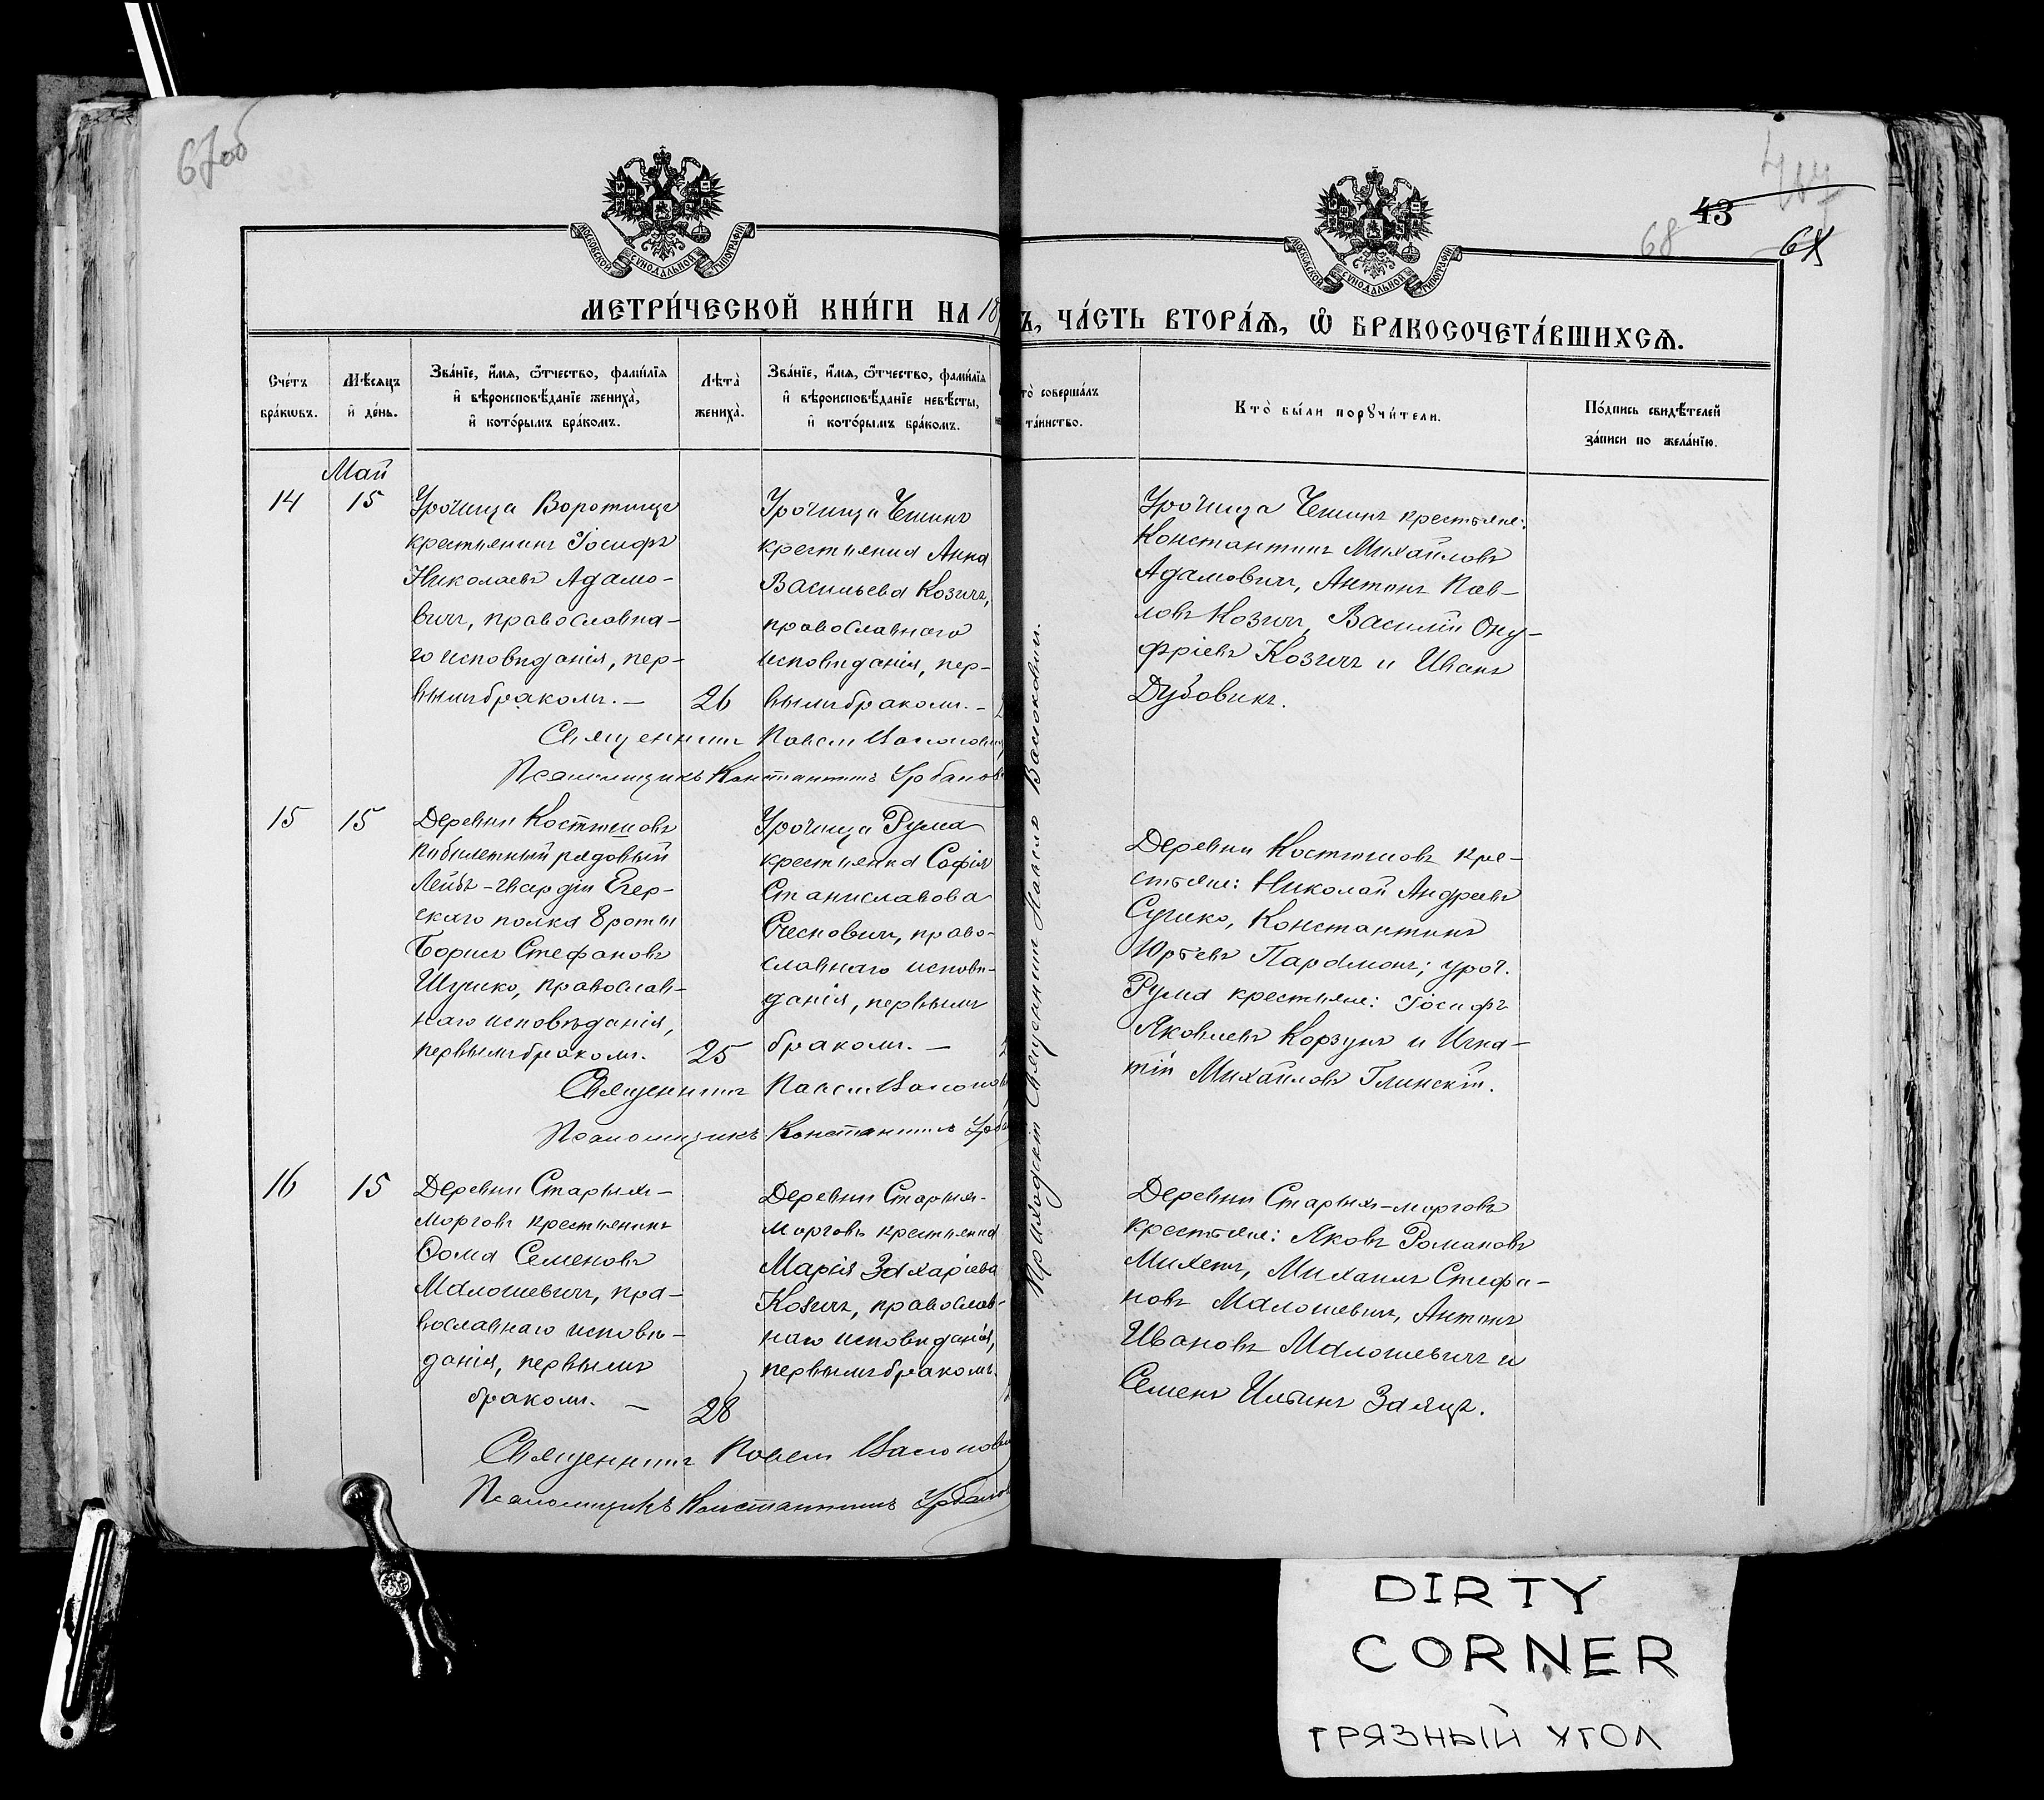 67об
43
68
МОСКОВСКОЙ СѴНОДАЛЬНОЙ ТИПОГРАФІИ
МОСКОВСКОЙ СѴНОДАЛЬНОЙ ТИПОГРАФІИ
МЕТРИ́ЧЕСКОЙ КНИ́ГИ НА 18
Ъ, ЧА́СТЬ ВТОРА́Ѧ, Ѽ БРАКОСОЧЕТА́ВШИХСѦ.
Сче́тъ
бра́кѡвъ.
Мѣ́сяцъ
и҆ де́нь.
Зва́нїе, и҆́мя, ѻ҆́тчество, фами́лїя
и҆ вѣроисповѣ́данїе жениха̀,
и҆ кото́рымъ бра́комъ.
Лѣта̀
жениха̀.
Зва́нїе, и҆́мя, ѻ҆́тчество, фами́лїя
и҆ вѣроисповѣ́данїе невѣ́сты,
и҆ кото́рымъ бра́комъ.
то̀ соверша́лъ
та́инство.
Кто̀ бы́ли порꙋчи́тели.
По́дпись свидѣ́телей
за́писи по жела́нїю.
Май
14
15
Урочища Воротище
крестьянинъ Іосифъ
Николаевъ Адамо-
вичъ, православна-
го исповѣданія, пер-
вымъ бракомъ. —
26
Урочища Чешинъ
крестьянка Анна
Васильева Козичъ,
православнаго
исповѣданія, пер-
вымъ бракомъ. —
Урочища Чешинъ крестьяне:
Константинъ Михайловъ
Адамовичъ, Антонъ Пав-
ловъ Козичъ, Василій Ону-
фріевъ Козичъ и Иванъ
Дубовикъ.
Священникъ Павелъ
Псаломщикъ Константинъ Урбанов
15
15
Деревни Костюшовъ
рядовый
Лейбъ-гвардіи Егер-
скаго полка 8 роты
Борисъ Стефановъ
Шушко, православ-
наго исповѣданія,
первымъ бракомъ.
25
Урочища Рума
крестьянка Софія
Станиславова
православнаго исповѣ-
данія, первымъ
бракомъ. —
Деревни Костюшовъ кре-
стьяне: Николай Андреевъ
Сушко, Константинъ
Юрьевъ Пармонъ; уроч.
Рума крестьяне: Іосифъ
Яковлевъ Корзунъ и Игна-
тій Михайловъ Глинскій.
Священникъ Павелъ
Псаломщикъ Константинъ Урба
16
15
Деревни Старыхъ-
морговъ крестьянинъ
Ѳома Семеновъ
Малошевичъ, пра-
вославнаго исповѣ-
данія, первымъ
бракомъ. —
28
Деревни Старыхъ-
морговъ крестьянка
Марія Захаріева
Козичъ, православ-
наго исповѣданія,
первымъ бракомъ.
Деревни Старыхъ-морговъ
крестьяне: Яковъ Романовъ
Михаилъ Стефа-
новъ Малошевичъ, Антонъ
Ивановъ Малошевичъ и
Семенъ Ильинъ Заяцъ.
Священникъ Павелъ
Псаломщикъ Константинъ Урбанов
Приходскій Священникъ Павелъ
DIRTY
CORNER
ГРЯЗНЫЙ УГОЛ